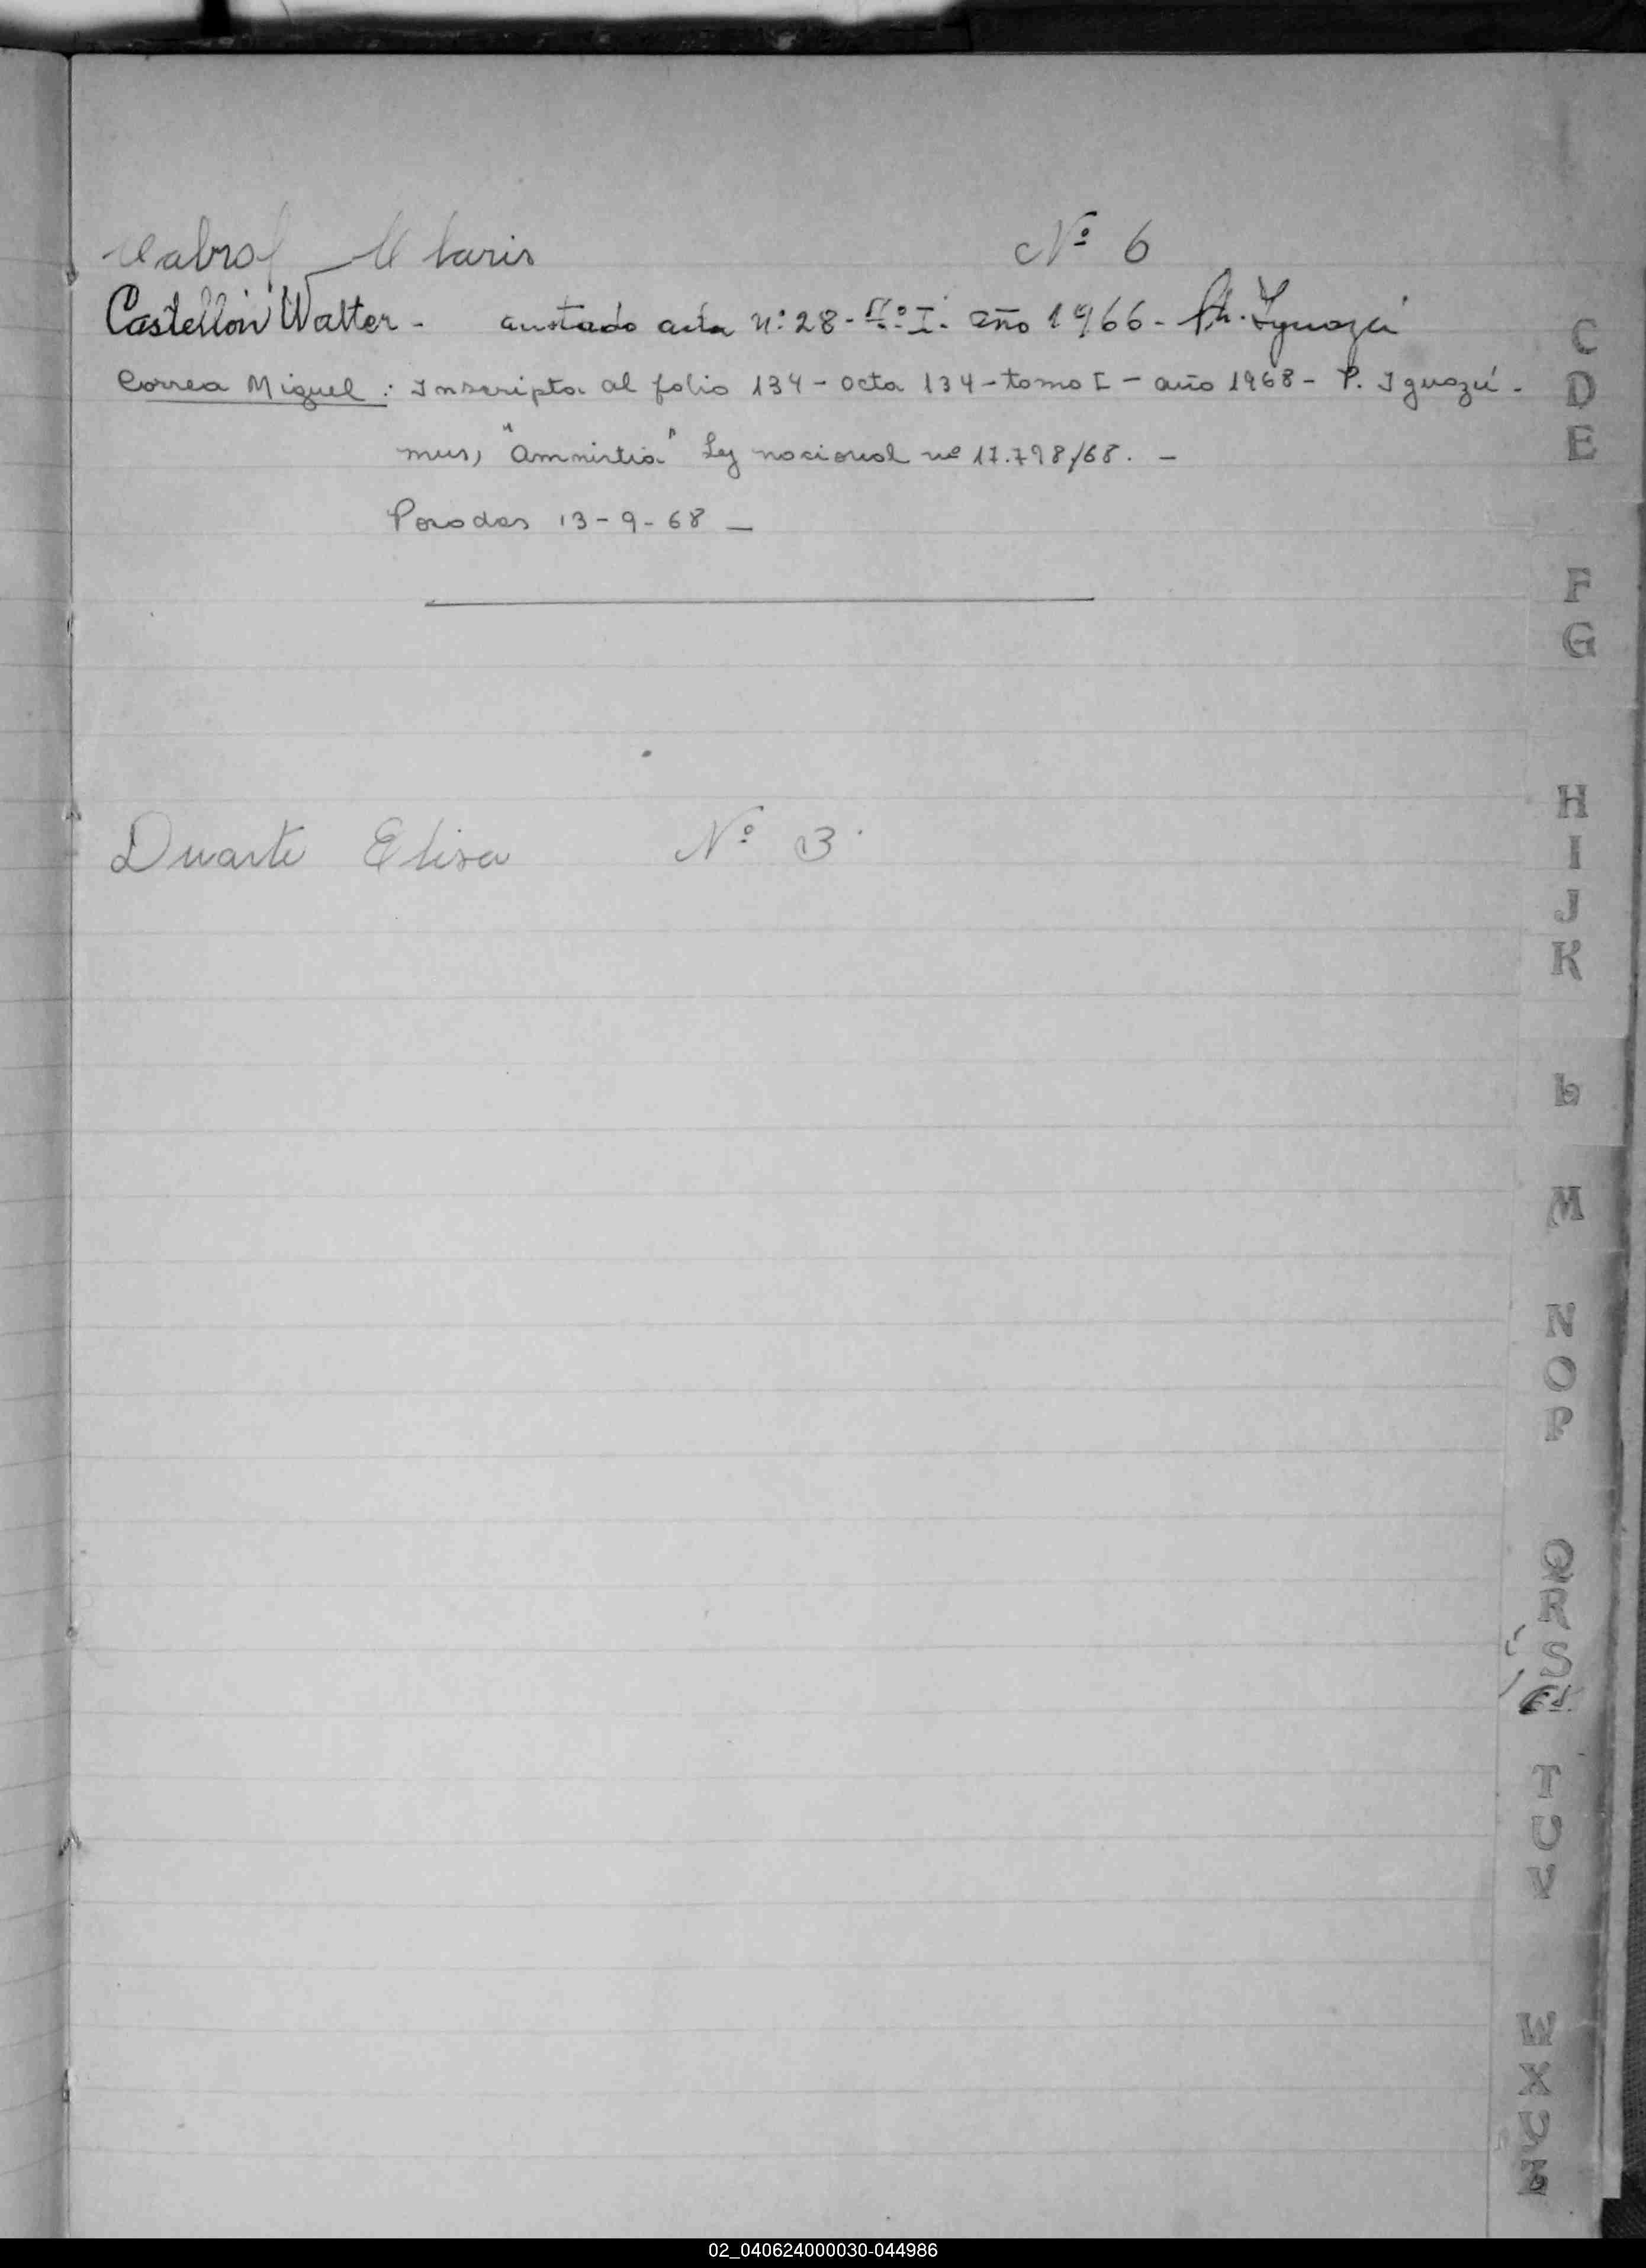 Cabral Maris Nº 6
Castellón Walter - anotado acta Nº 28 - Tº I. año 1966 - Pto. Iguazú
Correa Miguel : Inscripta al folio 134 - acta 134 - tomo I - año 1968 - P. Iguazú -
mns, "Amnistia" Ley nacional nº 17.798/68. -
Posadas 13-9-68 -
Duarte Elisa Nº 3
C
D
E
F
G
H
I
J
K
L
M
N
O
P
Q
R
S
T
U
V
W
X
Y
Z
02_040624000030-044986